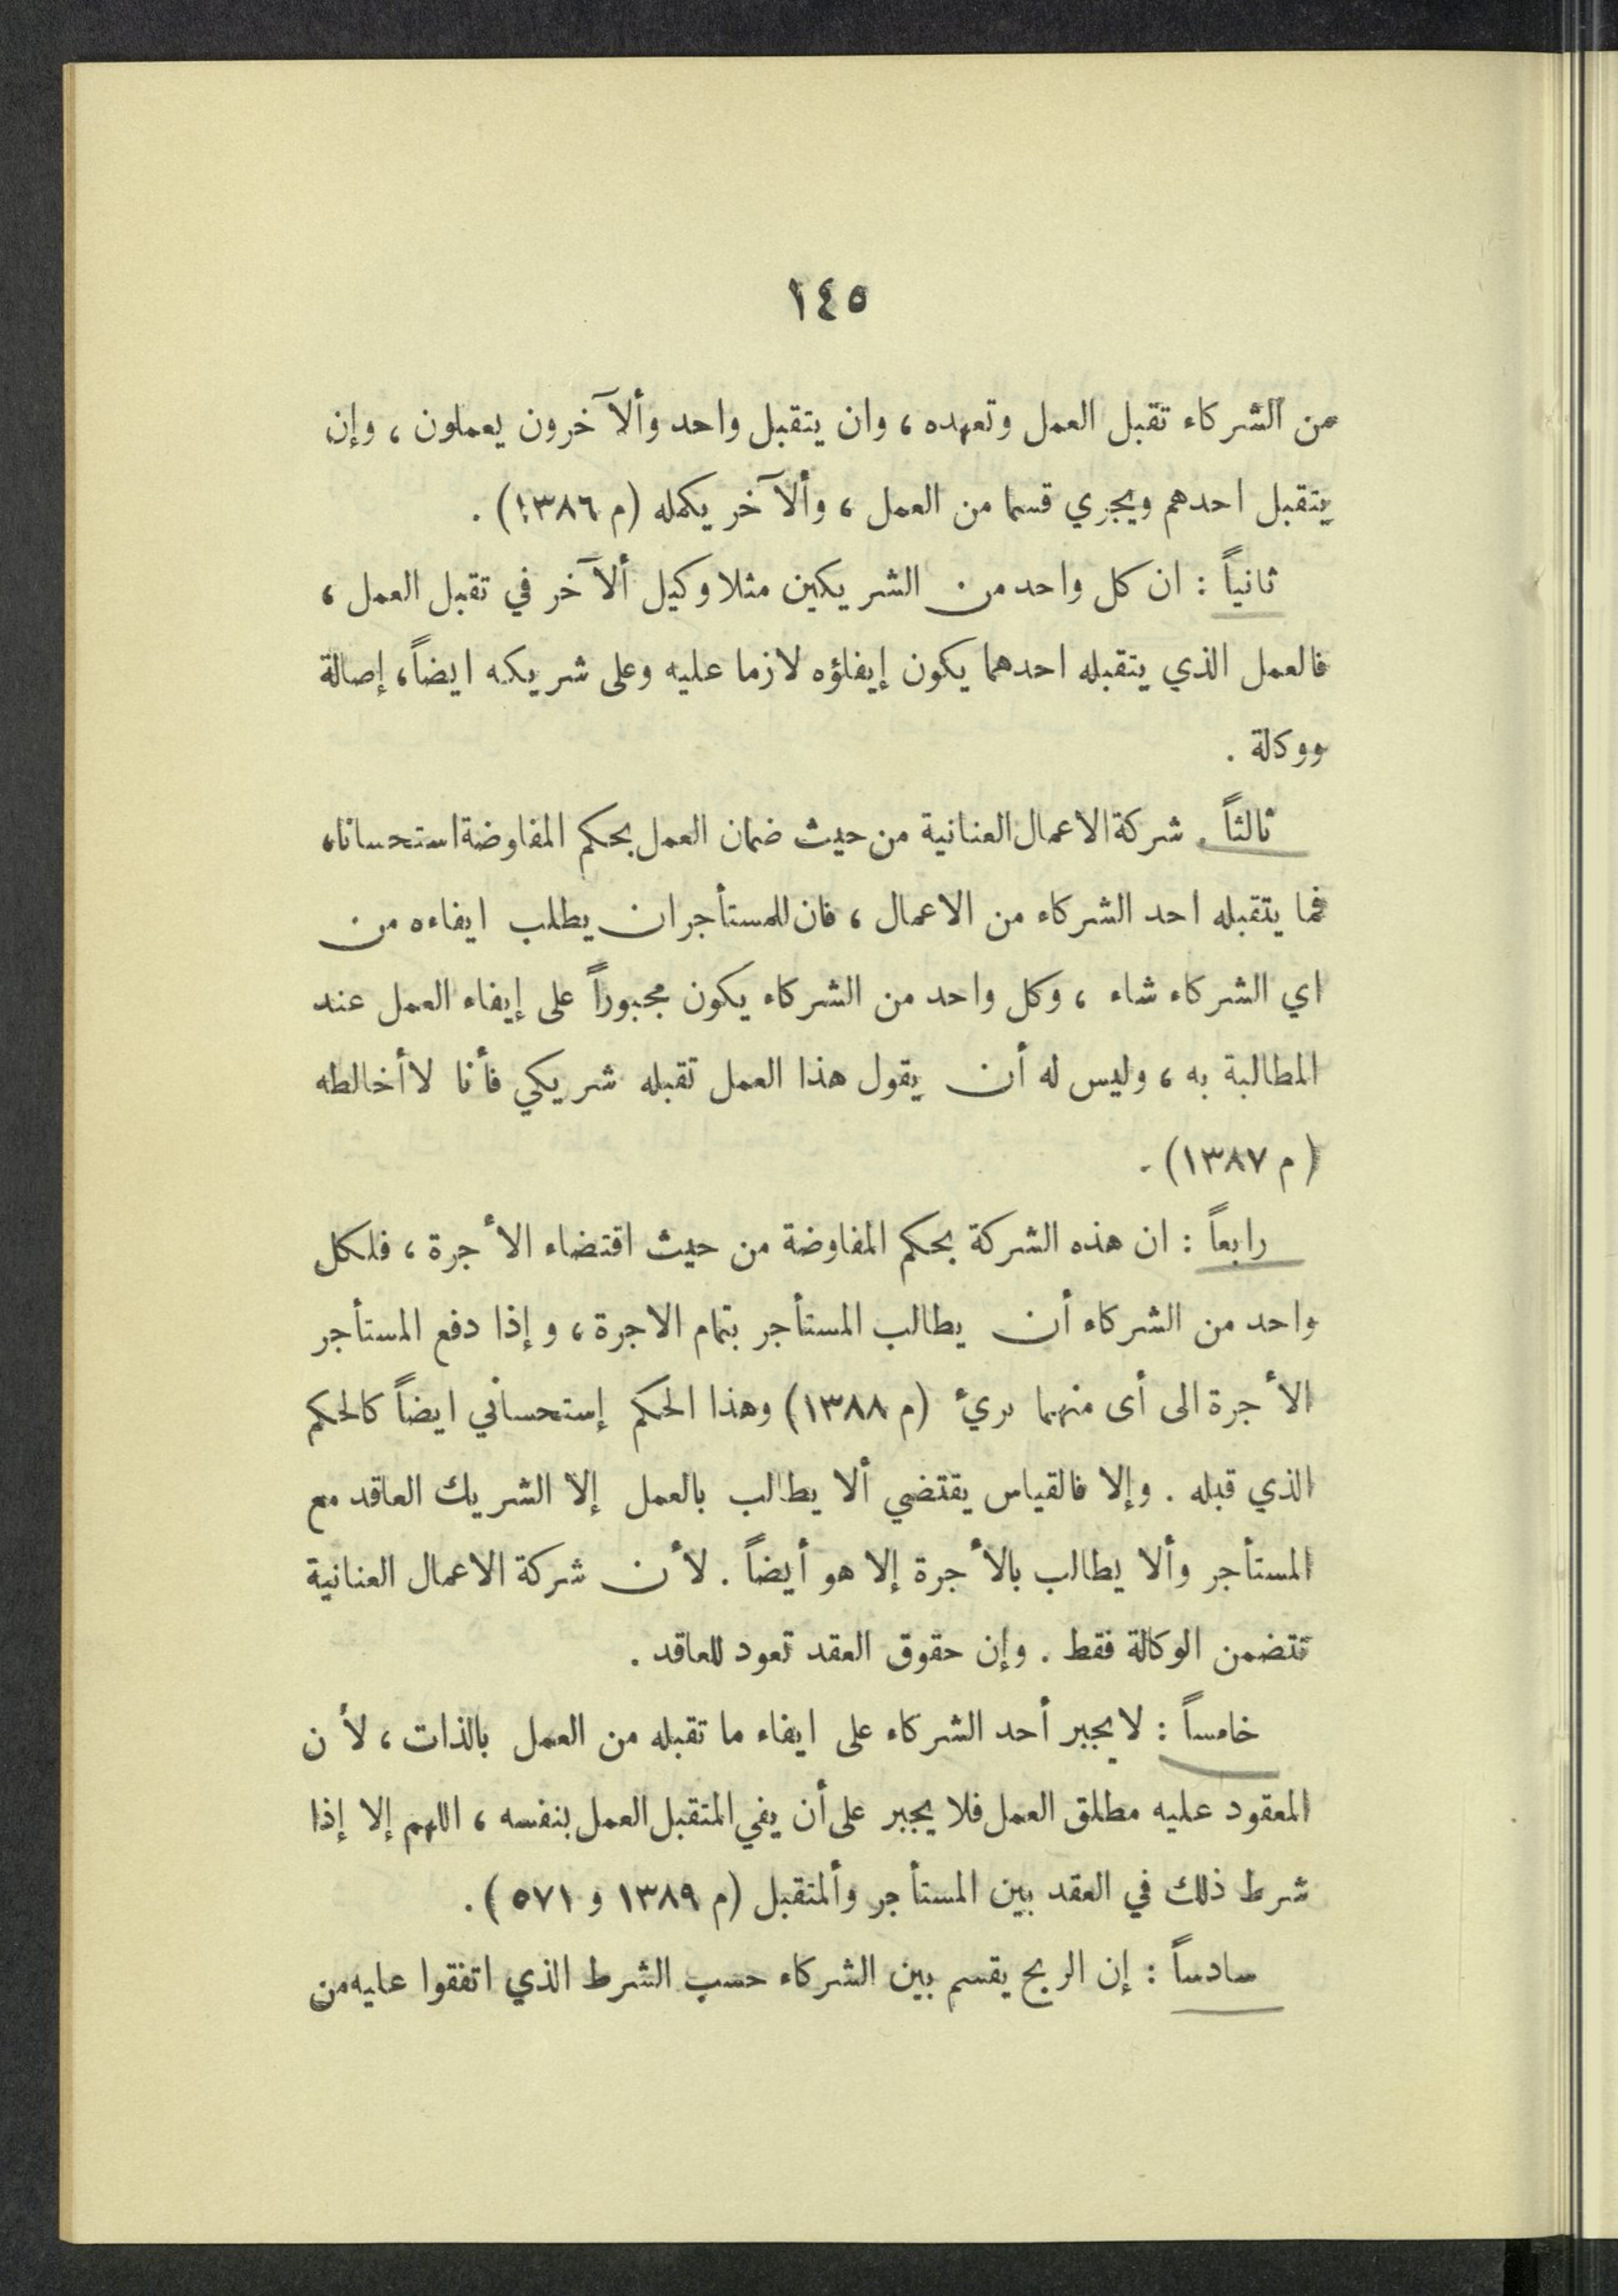 ١٤٥
من الشركاء تقبل العمل وتعهده ، وان يتقبل واحد وألآخرون يعملون ، وإن
يتقبل احدهم ويجري قسما من العمل ، وألآخر يكمله (م ١٣٨٦) .
ثانياً : ان كل واحد من الشريكين مثلا وكيل ألآخر في تقبل العمل ،
فالعمل الذي يتقبله احدهما يكون إيفاؤه لازما عليه وعلى شريكه ايضاً ، إصالة
ووكالة .
ثالثاً . شركة الاعمال العنانية من حيث ضمان العمل بحكم المفاوضة استحسانا ،
فما يتقبله احد الشركاء من الاعمال ، فان للمستأجر ان يطلب ايفاءه من
اي الشركاء شاء ، وكل واحد من الشركاء يكون مجبوراً على إيفاء العمل عند
المطالبة به ، وليس له أن يقول هذا العمل تقبله شريكي فأنا لا أخالطه
(م ١٣٨٧) .
رابعاً : ان هذه الشركة بحكم المفاوضة من حيث اقتضاء الأجرة ، فلكل
واحد من الشركاء أن يطالب المستأجر بتمام الاجرة ، وإذا دفع المستأجر
الأجرة الى أى منهما برئ (م ١٣٨٨) وهذا الحكم إستحساني ايضاً كالحكم
الذي قبله . وإلا فالقياس يقتضي ألا يطالب بالعمل إلا الشريك العاقد مع
المستأجر وألا يطالب بالأجرة إلا هو أيضاً . لأن شركة الاعمال العنانية
تتضمن الوكالة فقط . وإن حقوق العقد تعود للعاقد .
خامساً : لا يجبر أحد الشركاء على ايفاء ما تقبله من العمل بالذات ، لأن
المعقود عليه مطلق العمل فلا يجبر على أن يفي المتقبل العمل بنفسه ، اللهم إلا إذا
شرط ذلك في العقد بين المستأجر وألمتقبل (م ١٣٨٩ و ٥٧١) .
سادساً : إن الربح يقسم بين الشركاء حسب الشرط الذي اتفقوا عليه من